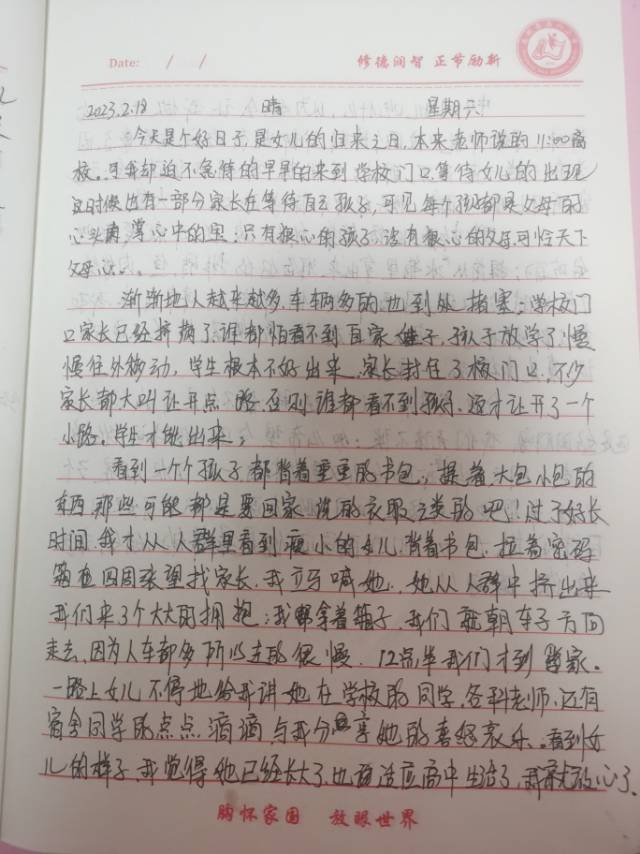 Date: / /
修德润智 正节励新
2023.2.18 晴 星期六
今天是个好日子,是女儿的归来之日,本来老师说的11:00离
校。可我却迫不急待的早早的来到学校门口等待女儿的出现
这时候也有一部分家长在等待自己孩子,可见每个孩子都是父母的
心头肉,掌心中的宝;只有狠心的孩子没有狠心的父母,可怜天下
父母心。
渐渐地人越来越多,车辆多的也到处拥塞;学校门
口家长已经挤满了,谁都怕看不到自家娃子,孩子放学了慢
慢往外移动,学生根本不好出来,家长封住了校门口,不少
家长都大叫让开点路,否则谁都看不到孩子,这才让开了一个
小路,学生才能出来;
看到一个个孩子都背着重重的书包,提着大包小包的
东西那些可能都是要回家洗的衣服之类的吧!过了好长
时间,我才从人群里看到瘦小的女儿,背着书包,拉着密码
箱在四周张望找家长,我立马喊她,她从人群中挤出来
我们来了个大大的拥抱;我帮拿着箱子,我们朝车子方向
走去,因为人车都多所以走的很慢,12点半我们才到家。
一路上女儿不停地给我讲她在学校的同学,各科老师,还有
宿舍同学的点点滴滴与我分享她的喜怒哀乐。看到女
儿的样子,我觉得她已经长大了,也适应高中生活了,我就放心了。
胸怀家国 放眼世界